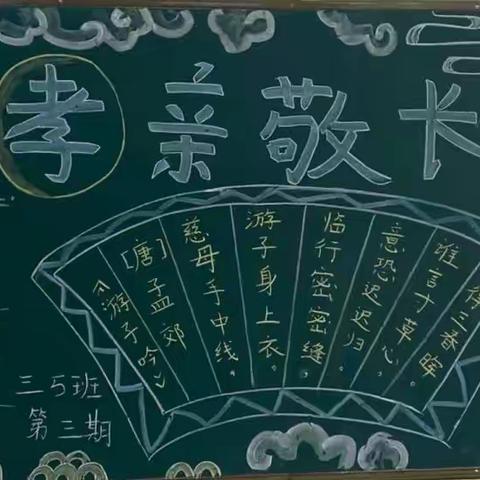 孝亲敬长
《游子吟》
[唐]孟郊
慈母手中线，
游子身上衣。
临行密密缝，
意恐迟迟归。
谁言寸草心，
得三春晖。
三5班
第三期